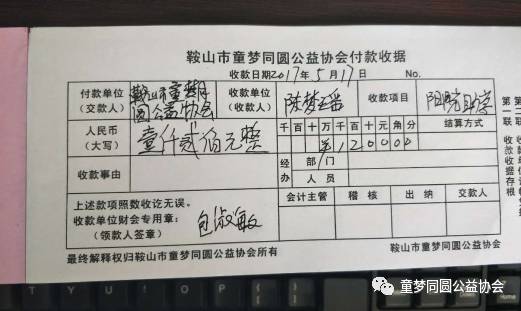 鞍山市童梦同圆公益协会付款收据
收款日期2017年5月17日 No.
付款单位（交款人） 鞍山市童梦圆公益协会 收款单位（收款人） 陈梦瑶 收款项目 阳光助学
人民币（大写） 壹仟贰佰元整 千百十万千百十元角分 结算方式
¥120000
收款事由 经办 部门
人员
上述款项照数收讫无误。 会计主管 稽核 出纳 交款人
收款单位财会专用章：
（领款人签章） 包淑敏
最终解释权归鞍山市童梦同圆公益协会所有 鞍山市童梦同圆公益协会
童梦同圆公益协会
T Y U